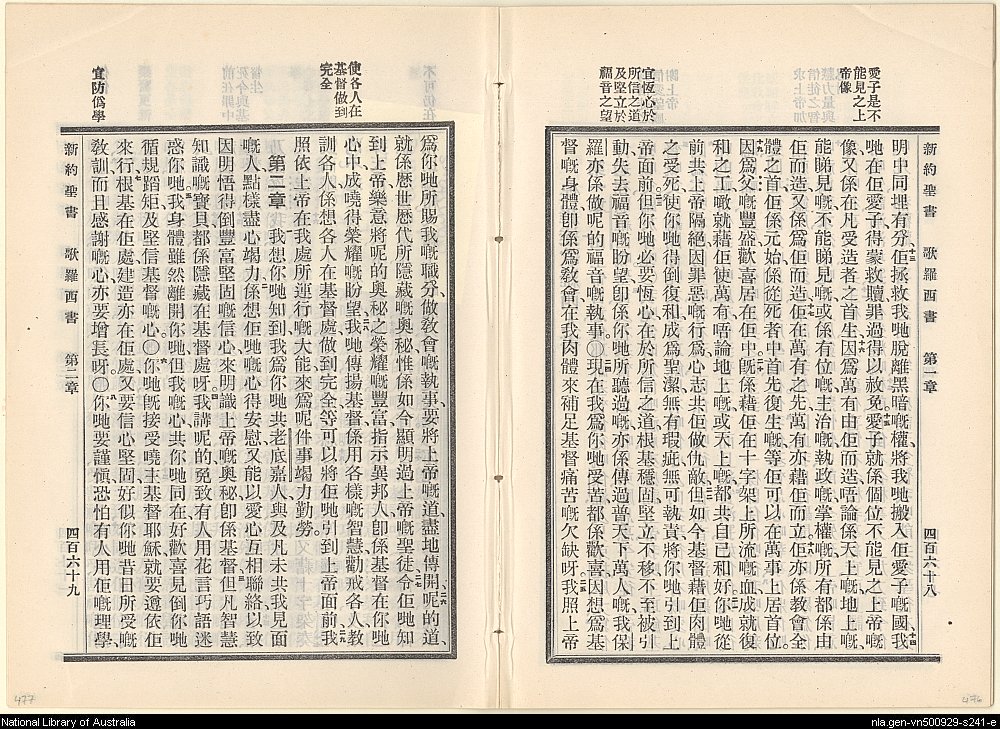 愛子是不
能見之上
帝像
宜恆心於
所信之道
及堅立於
福音之望
新約聖書 歌羅西書 第一章 四百六十八
明中同埋有分、十三佢拯救我哋脫離黑暗嘅權、將我哋搬入佢愛子嘅國、十四我
哋在佢愛子、得蒙救贖、罪過得以赦免、十五愛子就係個位不能見之上帝嘅
像、又係在凡受造者之首生、十六因爲萬有由佢而造、唔論係天上嘅、地上嘅、
能睇見嘅、不能睇見嘅、或係有位嘅、主治嘅、執政嘅、掌權嘅、所有都係由
佢而造、又係爲佢而造、十七佢在萬有之先、萬有亦藉佢而立、十八佢亦係教會全
體之首、佢係元始、係從死者中首先復生嘅、等佢可以在萬事上居首位。
十九因爲父嘅豐盛、歡喜居在佢中、二十旣係藉佢在十字架上所流嘅血、成就復
和之工、噉就藉佢使萬有、唔論地上嘅、或天上嘅、都共自己和好、二一你哋從
前共上帝隔絕、因罪惡嘅行爲、心志共佢做仇敵、二二但如今基督藉佢肉體
之受死、使你哋得倒復和、成爲聖潔、無有瑕疵、無可執責、將你哋引到上
帝面前、二三但你哋必要恆心在於所信之道、根基穩固、堅立不移、不至被引
動、失去福音嘅盼望、卽係你哋所聽過嘅、亦係傳過普天下萬人嘅、我保
羅亦係做呢的福音嘅執事。〇二四現在我爲你哋受苦、都係歡喜、因想爲基
督嘅身體、卽係爲教會、在我肉體來補足基督痛苦嘅欠缺呀、二五我照上帝
使各人在
基督做到
完全
宜防僞學
爲你哋所賜我嘅職分、做敎會嘅執事、要將上帝嘅道、盡地傳開、二六呢的道、
就係歷世歷代所隱藏嘅奧秘、惟係如今顯明過上帝嘅聖徒、二七令佢哋知
到上帝樂意將呢的奧秘之榮耀嘅豐富、指示異邦人、卽係基督在你哋
心中、成嘵得榮耀嘅盼望、二八我哋傳揚基督、係用各樣嘅智慧、勸戒各人、教
訓各人、係想各人在基督處做到完全、等可以將佢哋引到上帝面前、二九我
照依上帝在我處所運行嘅大能、來爲呢件事竭力勤勞。
第二章 一我想你哋知到我爲你哋、共老底嘉人、與及凡未共我見面
嘅人、點樣盡心竭力、二係想佢哋嘅心得安慰、又能以愛心互相聯絡、以致
因明悟得倒豐富堅固嘅信心、來明識上帝嘅奧秘、卽係基督、三但凡智慧
知識嘅寶貝、都係隱藏在基督處呀、四我講呢的、免致有人用花言巧語迷
惑你哋、五我身體雖然離開你哋、但我嘅心共你哋同在、好歡喜見倒你哋
循規蹈矩、及堅信基督嘅心。〇六你哋旣接受嘵主基督耶穌、就要遵依佢
來行、七根基在佢處、建造亦在佢處、又要信心堅固、好似你哋昔日所受嘅
敎訓、而且感謝嘅心、亦要增長呀。〇八你哋要謹愼、恐怕有人用佢嘅理學、
新約聖書 歌羅西書 第二章 四百六十九
477
476
National Library of Australia
nla.gen-vn500929-s241-e